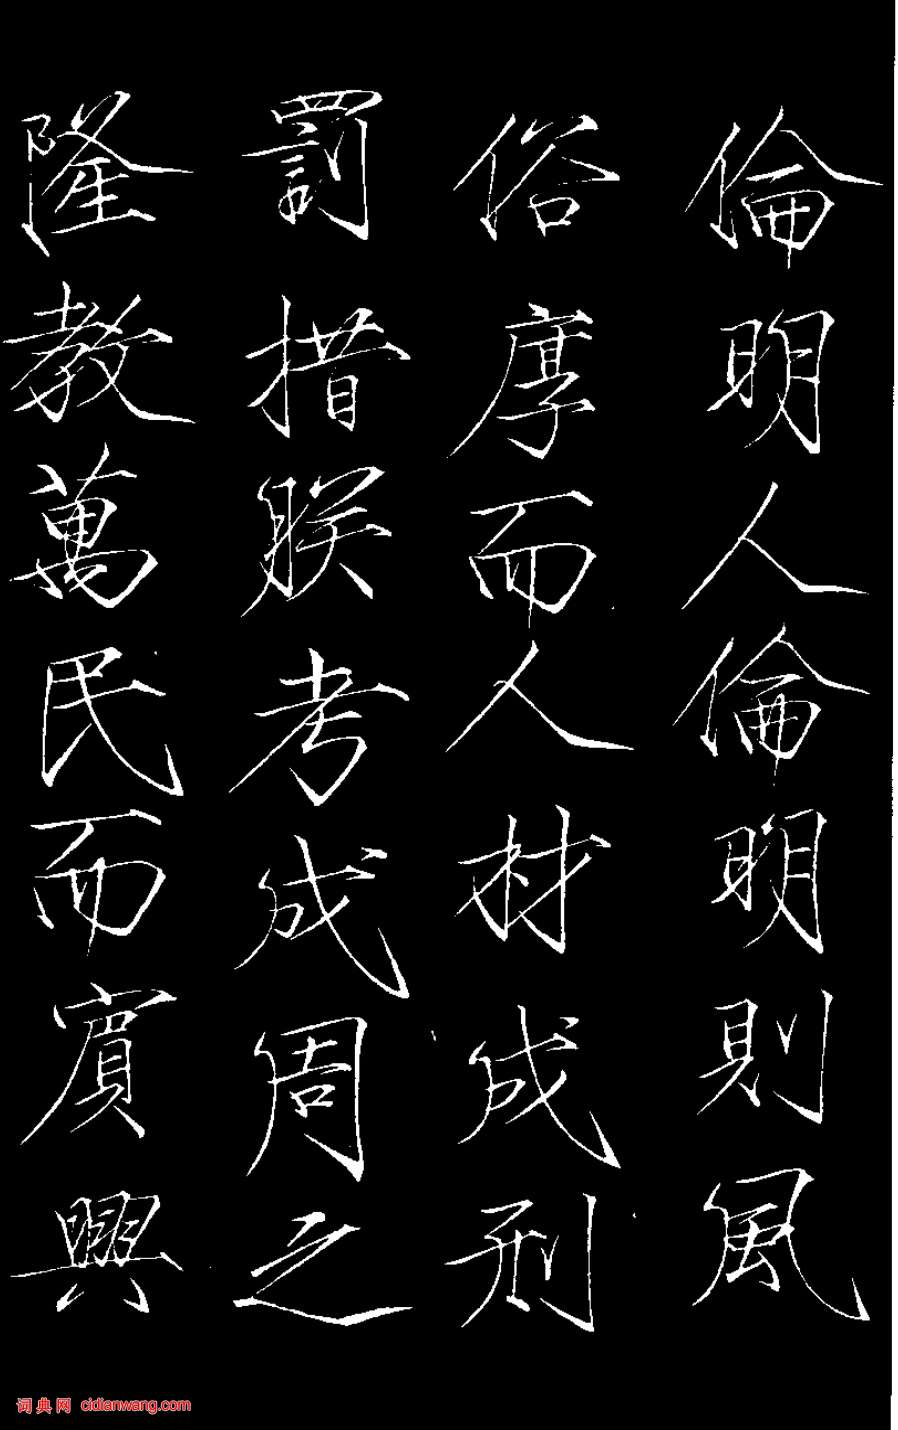 倫明人倫明則風
俗厚而人材成刑
罰措朕考成周之
隆教萬民而賓興
词典网 cidianwang.com